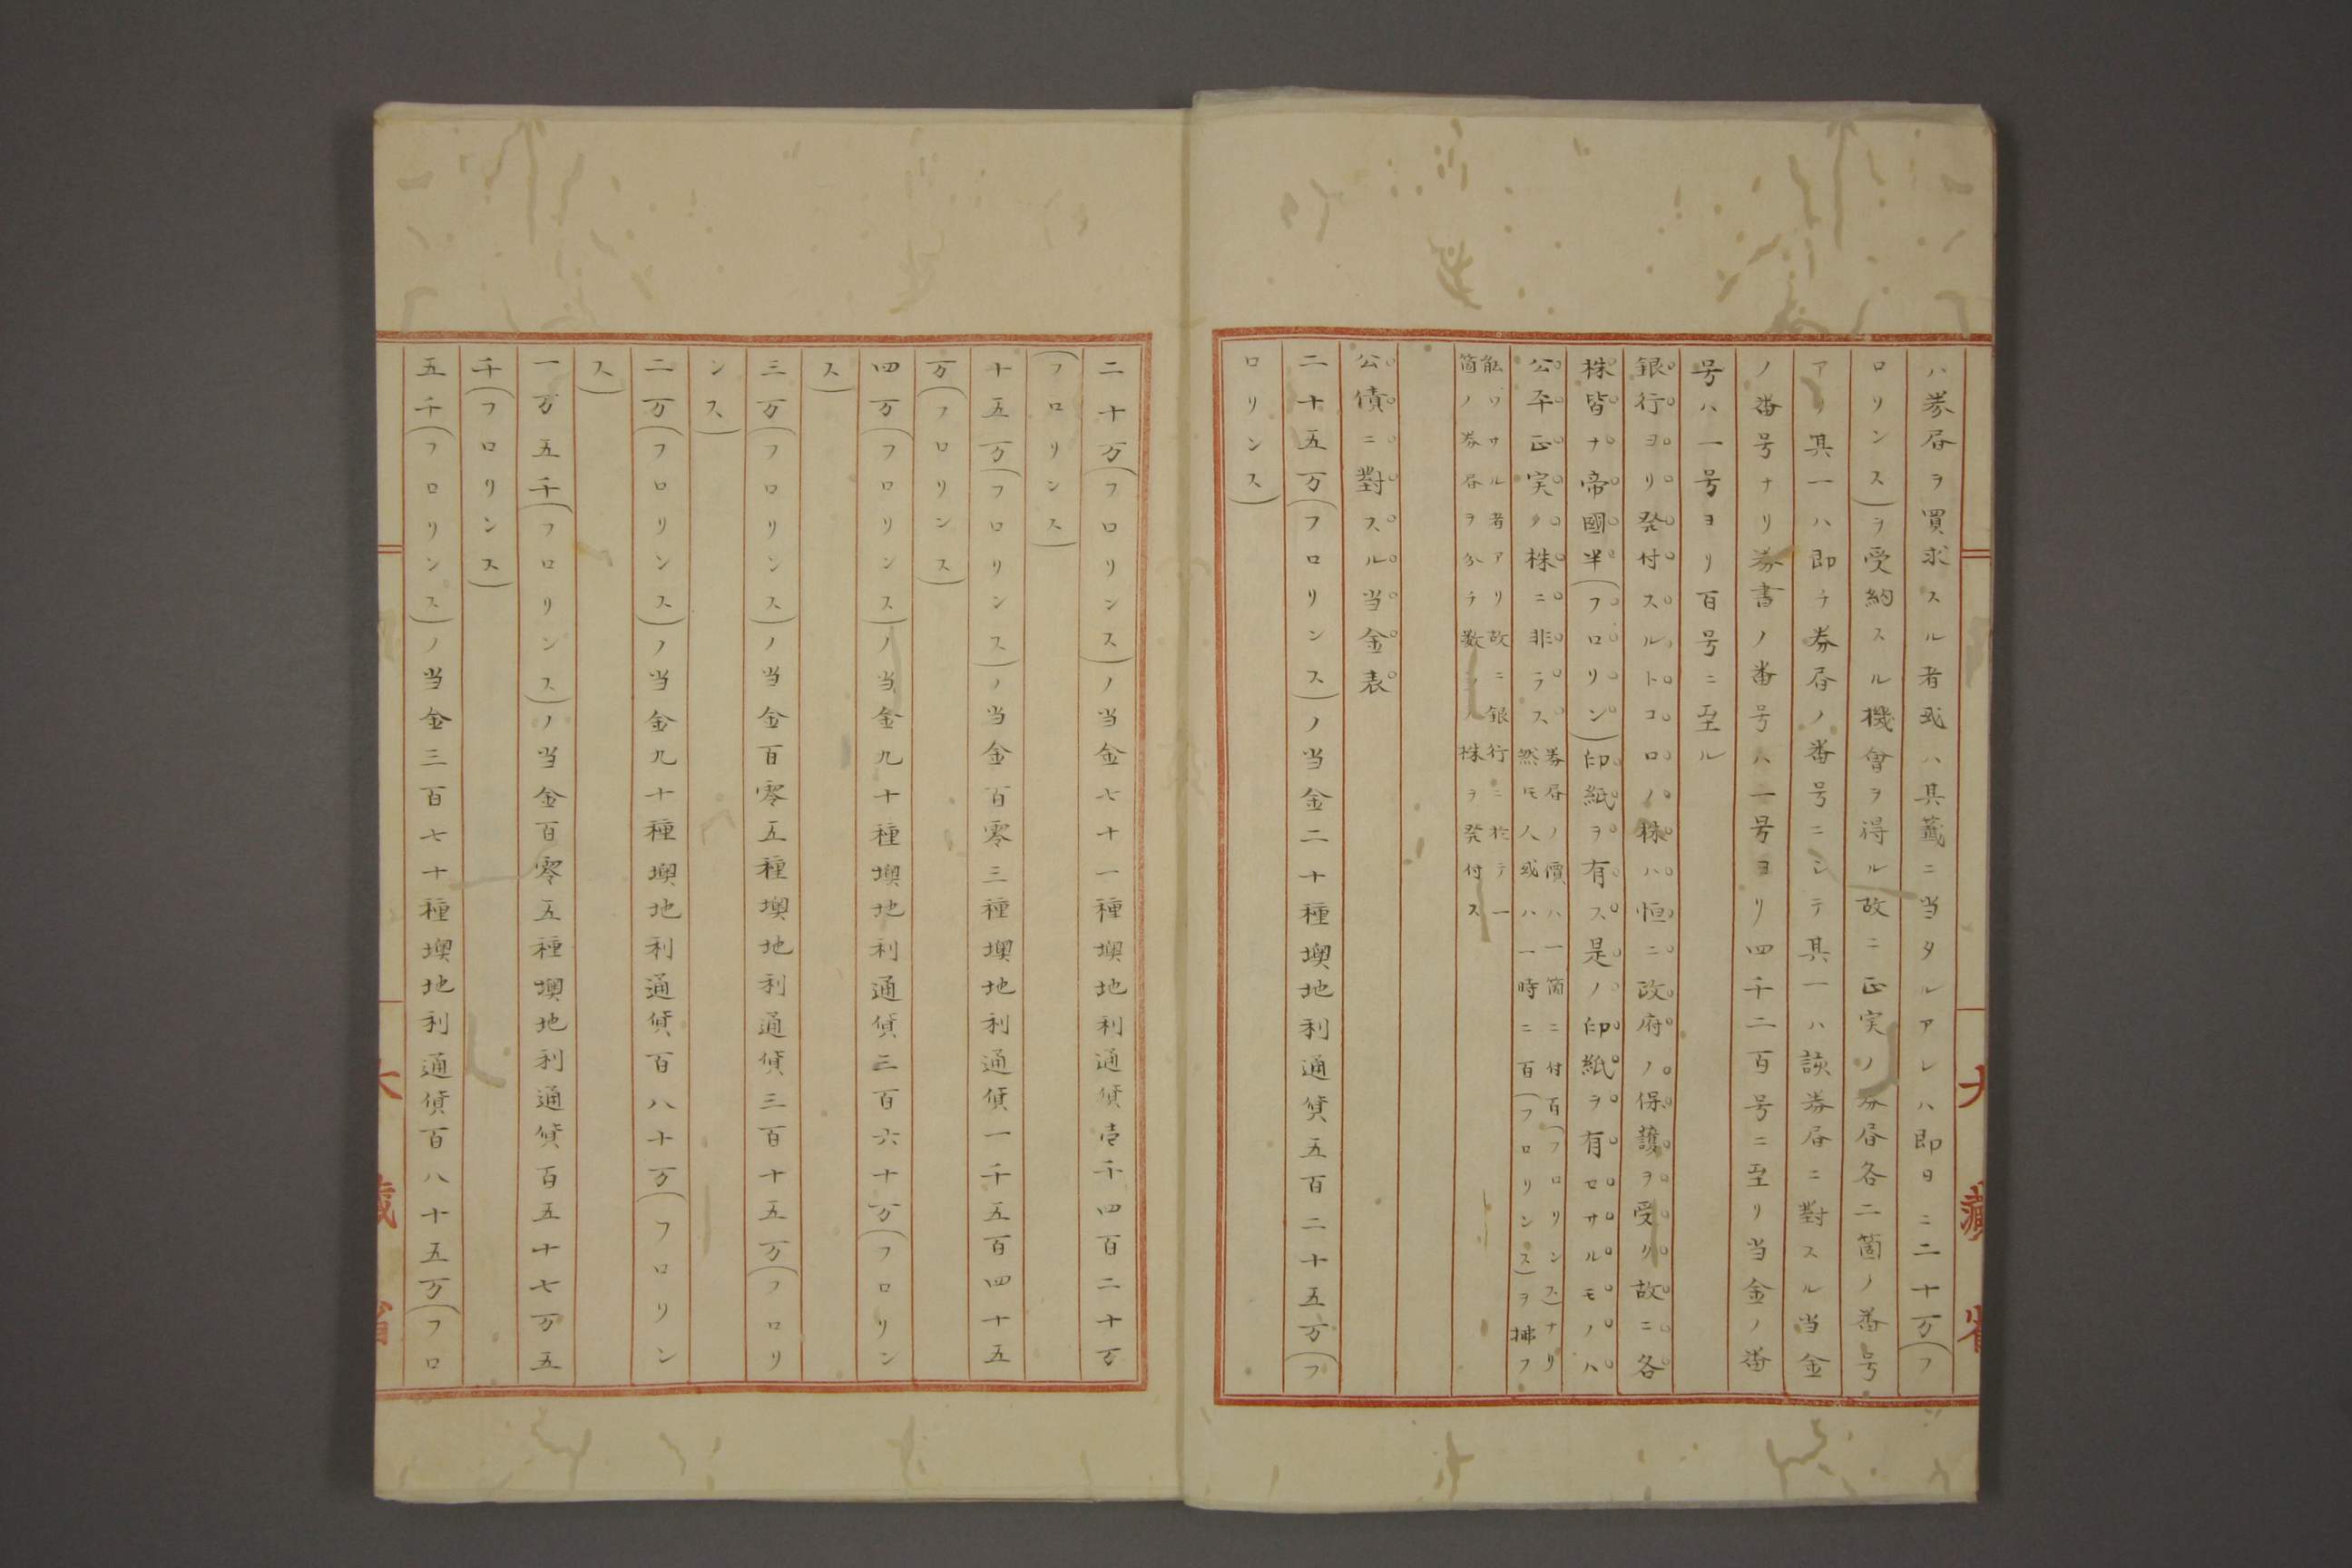 ハ券㞐ヲ買求スル者或ハ其籤ニ当タルアレハ即日ニ二十万(フ
ロリンス)ヲ受納スル機會ヲ得ル故ニ正実ノ券㞐各二箇ノ番号
アリ其一ハ即チ券㞐ノ番号ニシテ其一ハ該券㞐ニ對スル当金
ノ番号ナリ券書ノ番号ハ一号ヨリ四千二百号ニ至リ当金ノ番
号ハ一号ヨリ百号ニ至ル
銀行ヨリ発付スルトコロノ株ハ恒ニ政府ノ保護ヲ受リ故ニ各
株皆ナ帝國半(フロリン)印紙ヲ有ス是ノ印紙ヲ有セサルモノハ
公平正実ノ株ニ非ラス
券㞐ノ價ハ一箇ニ付百(フロリンス)ナリ
然モ人或ハ一時ニ百(フロリンス)ヲ拂フ
能ワサル者アリ故ニ銀行ニ於テ一
箇ノ券㞐ヲ分チ数ノ株ヲ発付ス
公債ニ對スル当金表
二十五万(フロリンス)ノ当金二十種墺地利通貨五百二十五万(フ
ロリンス)
二十万(フロリンス)ノ当金七十一種墺地利通貨壱千四百二十万
(フロリンス)
十五万(フロリンス)ノ当金百零三種墺地利通貨一千五百四十五
万(フロリンス)
四万(フロリンス)ノ当金九十種墺地利通貨三百六十万(フロリン
ス)
三万(フロリンス)ノ当金百零五種墺地利通貨三百十五万(フロリ
ンス)
二万(フロリンス)ノ当金九十種墺地利通貨百八十万(フロリン
ス)
一万五千(フロリンス)ノ当金百零五種墺地利通貨百五十七万五
千(フロリンス)
五千(フロリンス)ノ当金三百七十種墺地利通貨百八十五万(フロ
大藏省
大藏省